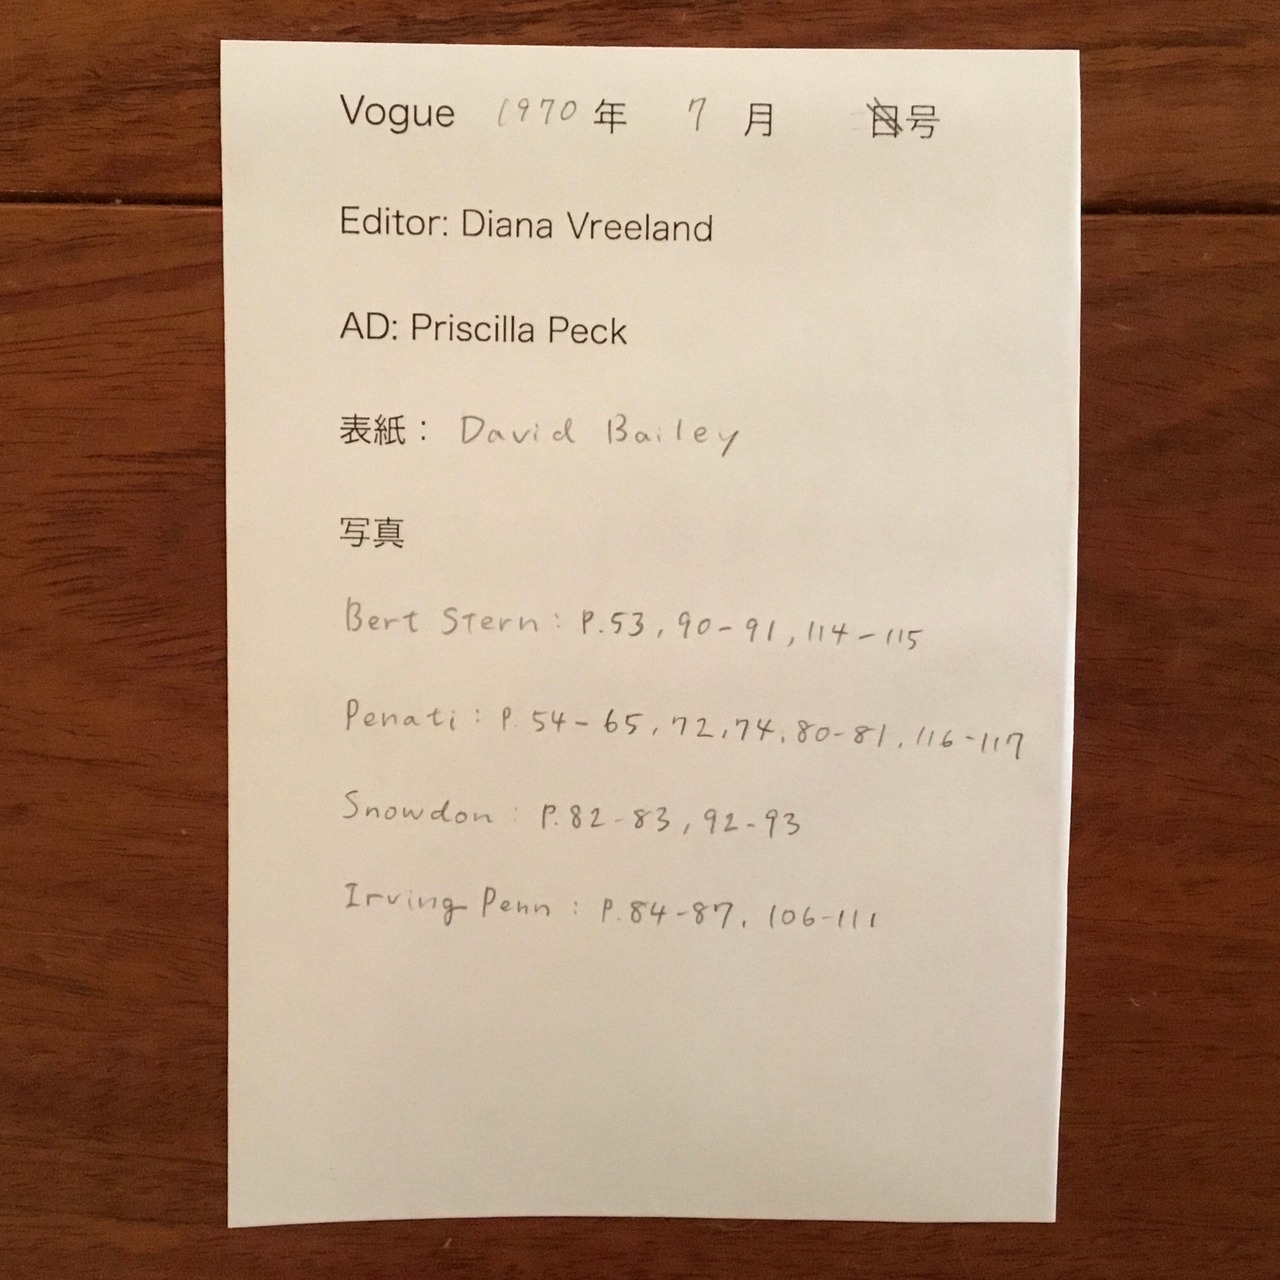 Vogue 1970年 7月 日号
Editor: Diana Vreeland
AD: Priscilla Peck
表紙： David Bailey
写真
Bert Stern : P.53, 90-91, 114-115
Penati : P.54-65, 72, 74, 80-81, 116-117
Snowdon : P.82-83, 92-93
Irving Penn : P.84-87, 106-111